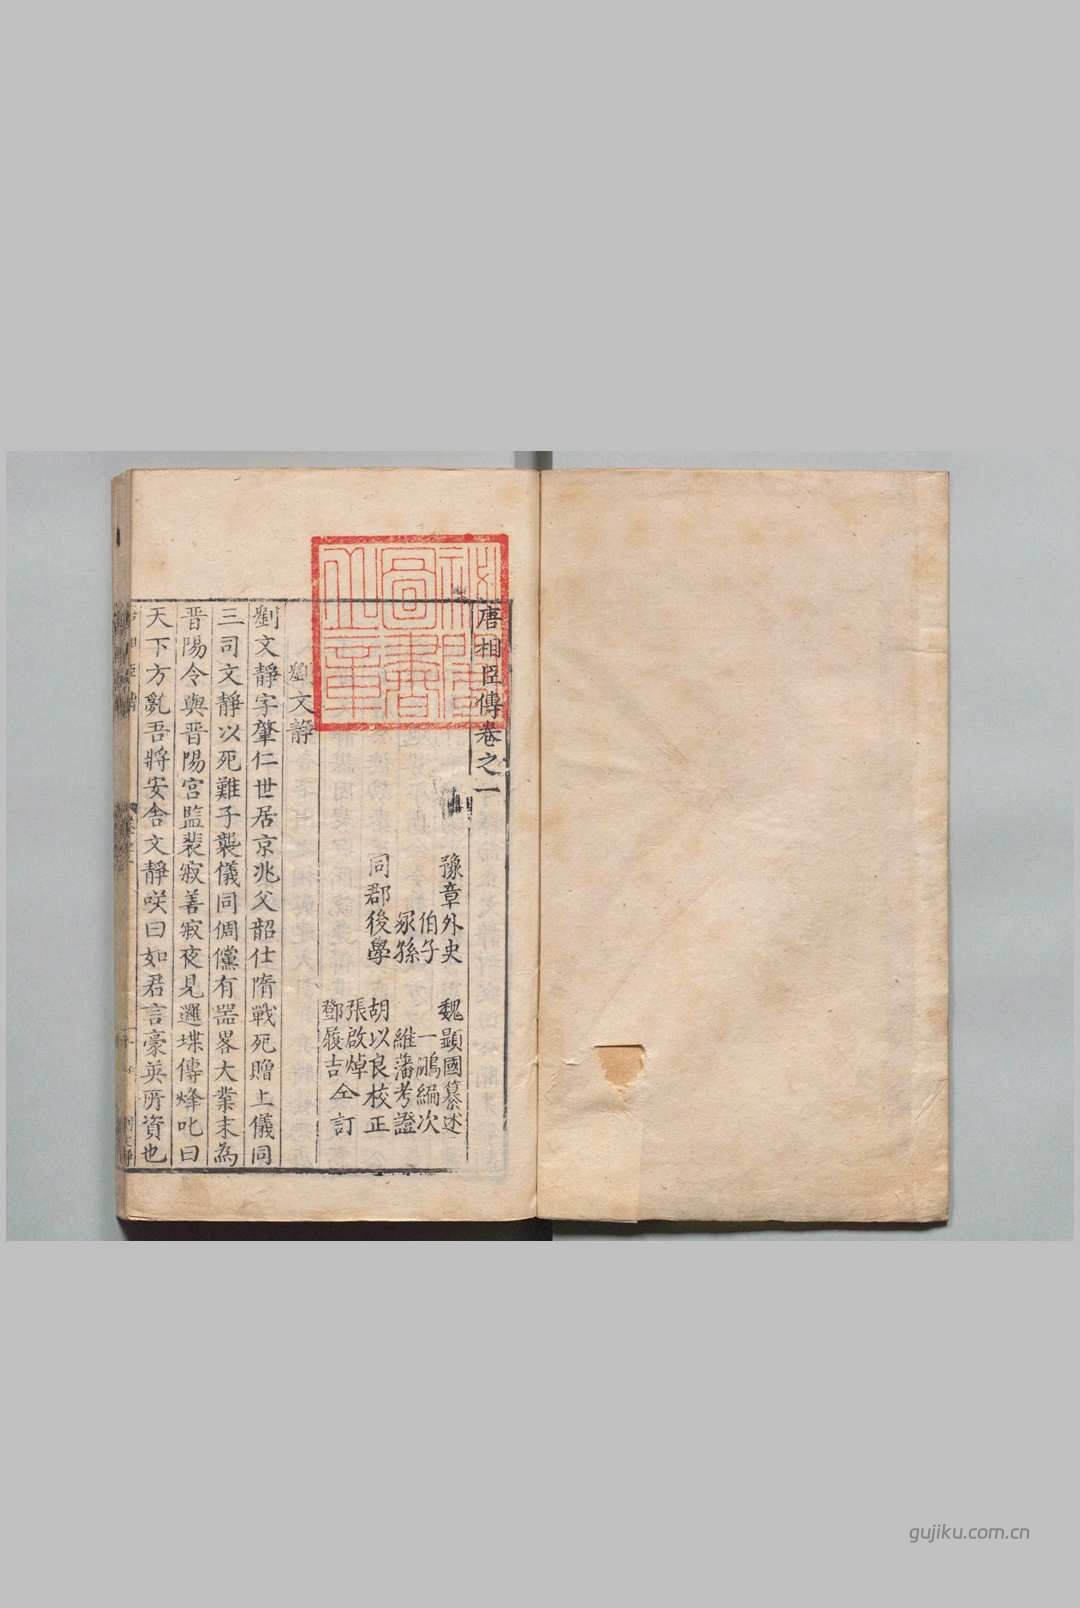 唐相臣傳卷之一
豫章外史 魏顯國纂述
伯子 一鵬編次
冢孫 維藩考證
同郡後學 胡以良校正
張啟焯
鄧履吉 仝訂
劉文靜
劉文靜字肇仁世居京兆父韶仕隋戰死贈上儀同
三司文靜以死難子襲儀同倜儻有噐畧大業末為
晋陽令與晋陽宮監裴寂善寂夜見邏堞傳烽叱曰
天下方亂吾將安舍文靜咲曰如君言豪英所資也
秘閣圖書之章
gujiku.com.cn